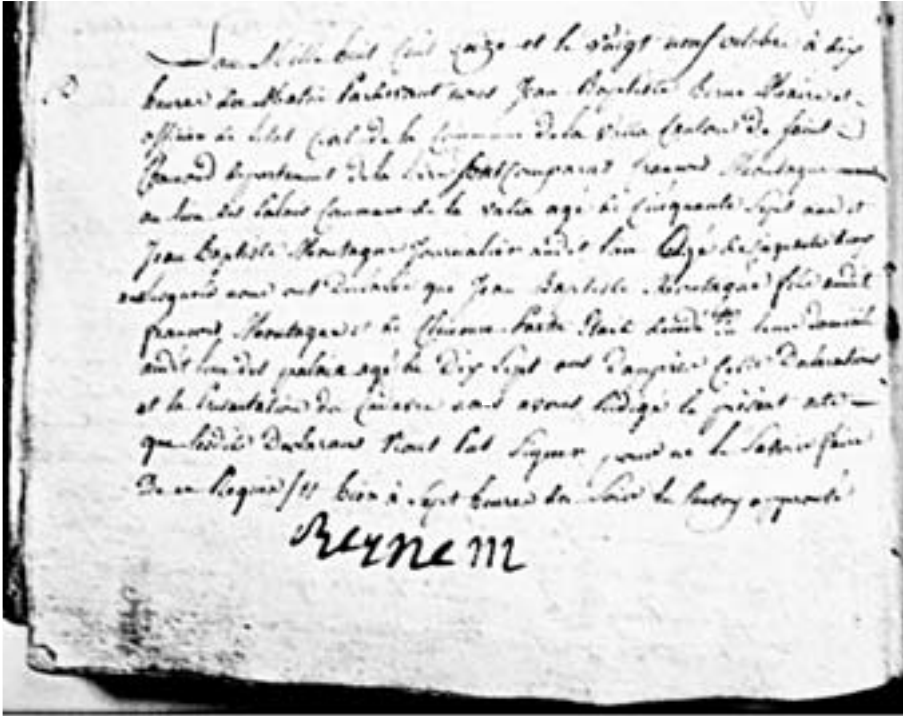 L'an Mille huit Cent onze et le vingt neuf octobre à dix
heures du Matin Pardevant nous Jean Baptiste Maire et
officier de l'état Civil de la Commune de la valla Canton de saint
Chamond département de la Loire sont Comparus françois Montagne
au lieu des palais Commune de la valla agé de Cinquante sept ans et
Jean Baptiste Montagne Journalier audit lieu Agé de
lesquels nous ont Déclarés que Jean Baptiste Montagne fils audit
françois Montagne et de Clémence était décédé en leur domicile
audit lieu des palais agé de Dix sept ans D'auprès Cette Déclaration
et la présentation du Cadavre nous avons Rédigé le présent acte
que lesdits Déclarans n'ont Pas Signés pour ne le Savoir faire
De ce Requis /// hier à Sept heures du Soir le Renvoy approuvé